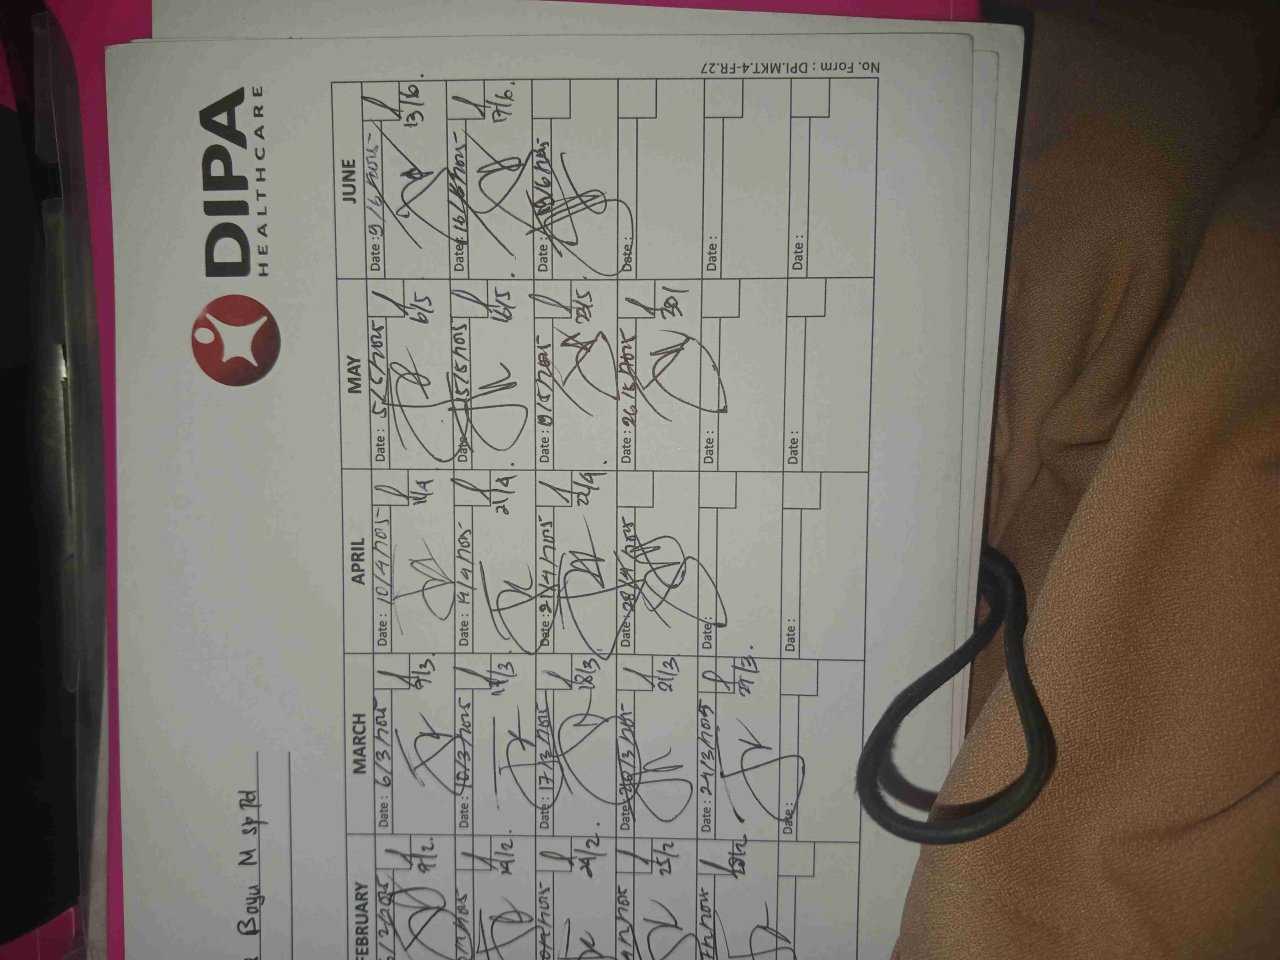 DIPA
HEALTHCARE
Bayu M Sp Pd
FEBRUARY
MARCH
APRIL
MAY
JUNE
9/2.
Date: 6/3/2025
9/3
Date: 10/4/2025
11/4
Date: 5/5/2025
6/5
Date: 9/6/2025
13/6.
14/2.
Date: 10/3/2025
17/3
Date: 14/4/2025
21/4
Date: 15/5/2025
16/5
Date: 16/6/2025
17/6.
24/2.
Date: 17/3/2025
18/3
Date: 21/4/2025
22/4.
Date: 19/5/2025
23/5
Date: /6/2025
25/2
Date: 20/3/2025
21/3
Date: 28/4/2025
Date: 26/5/2025
30/
Date:
Date: 24/3/2025
27/3.
Date:
Date:
Date:
Date:
Date:
Date:
Date:
No. Form : DPI.MKT.4-FR.27